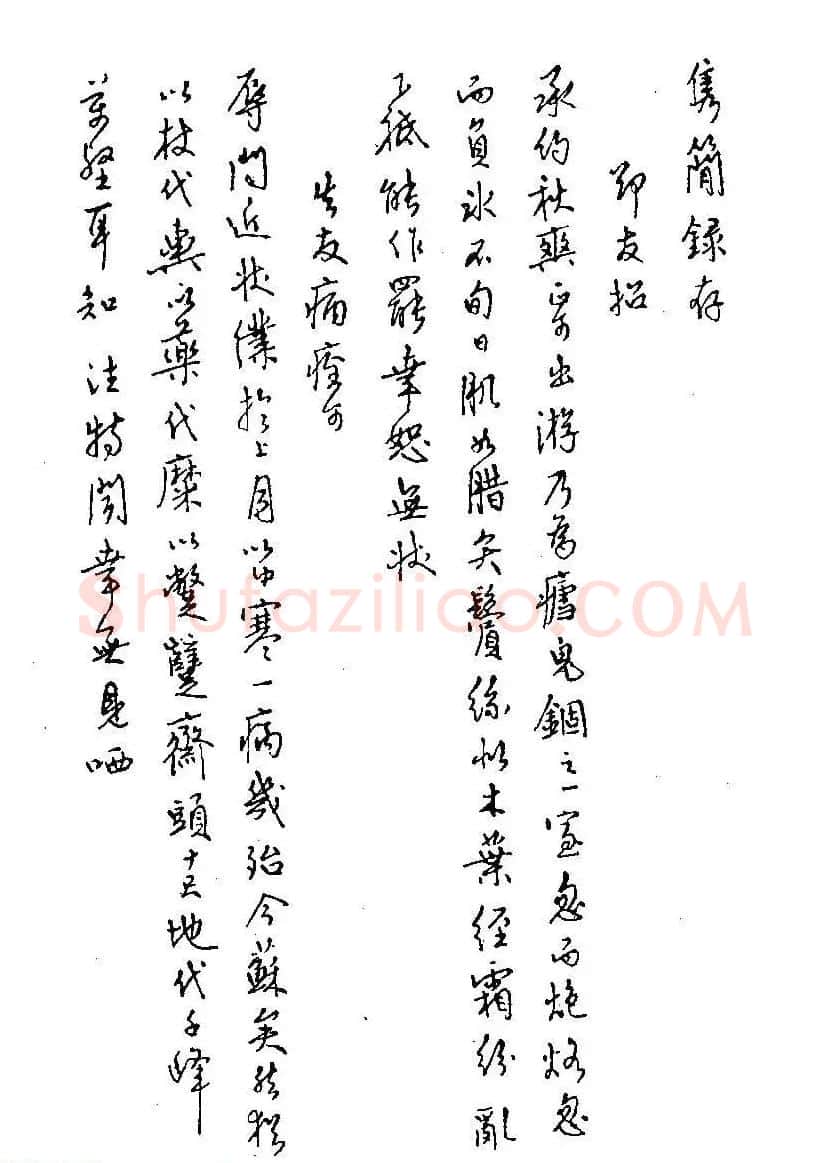 隽简录存
却友招
承约秋爽出游乃为疟鬼錮之一室忽而炮烙忽
而負冰不旬日肌如腊矣鬢絲似木葉經霜紛亂
下祗能作罷幸恕無狀
告友病痊
辱問近狀僕於上月以中寒一病幾殆今蘇矣然猶
以杖代輿以藥代糜以蹩躠齋頭十尺地代千峰
萬壑耳知注特聞幸無見哂
Shufaziliao.COM